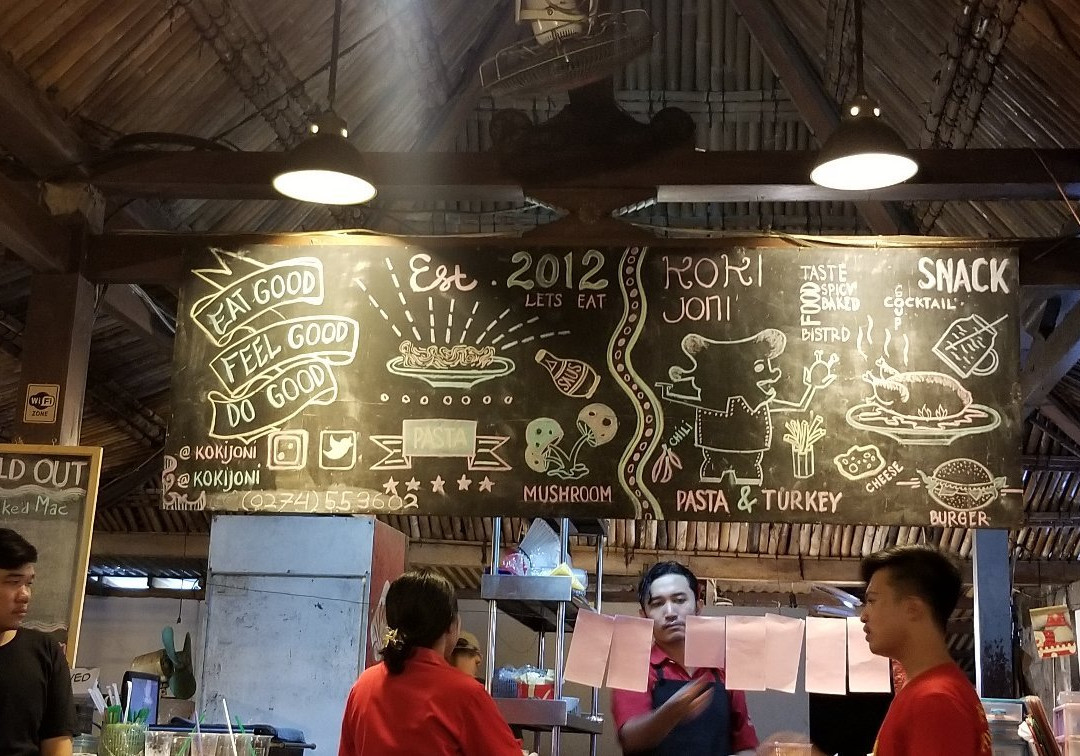 EAT GOOD
FEEL GOOD
DO GOOD
@KOKIJONI
@KOKIJONI
(0274) 553602
Est. 2012
LETS EAT
PASTA
MUSHROOM
KOKI
JONI
CHILI
PASTA & TURKEY
TASTE
FOOD
SPICY
BAKED
BISTRO
SNACK
COCKTAIL
SOUP
CHEESE
BURGER
WiFi
ZONE
LD OUT
ked Mac